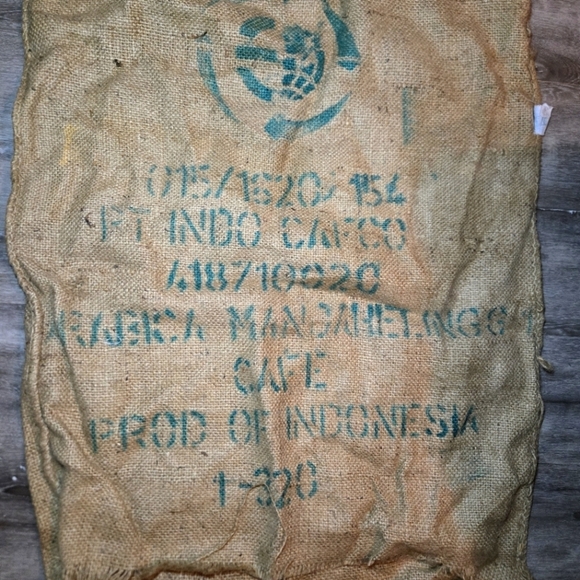 015/1620/154
PT INDO CAFCO
418710020
ARABICA MANDAHELING G-1
CAFE
PROD OF INDONESIA
1-320